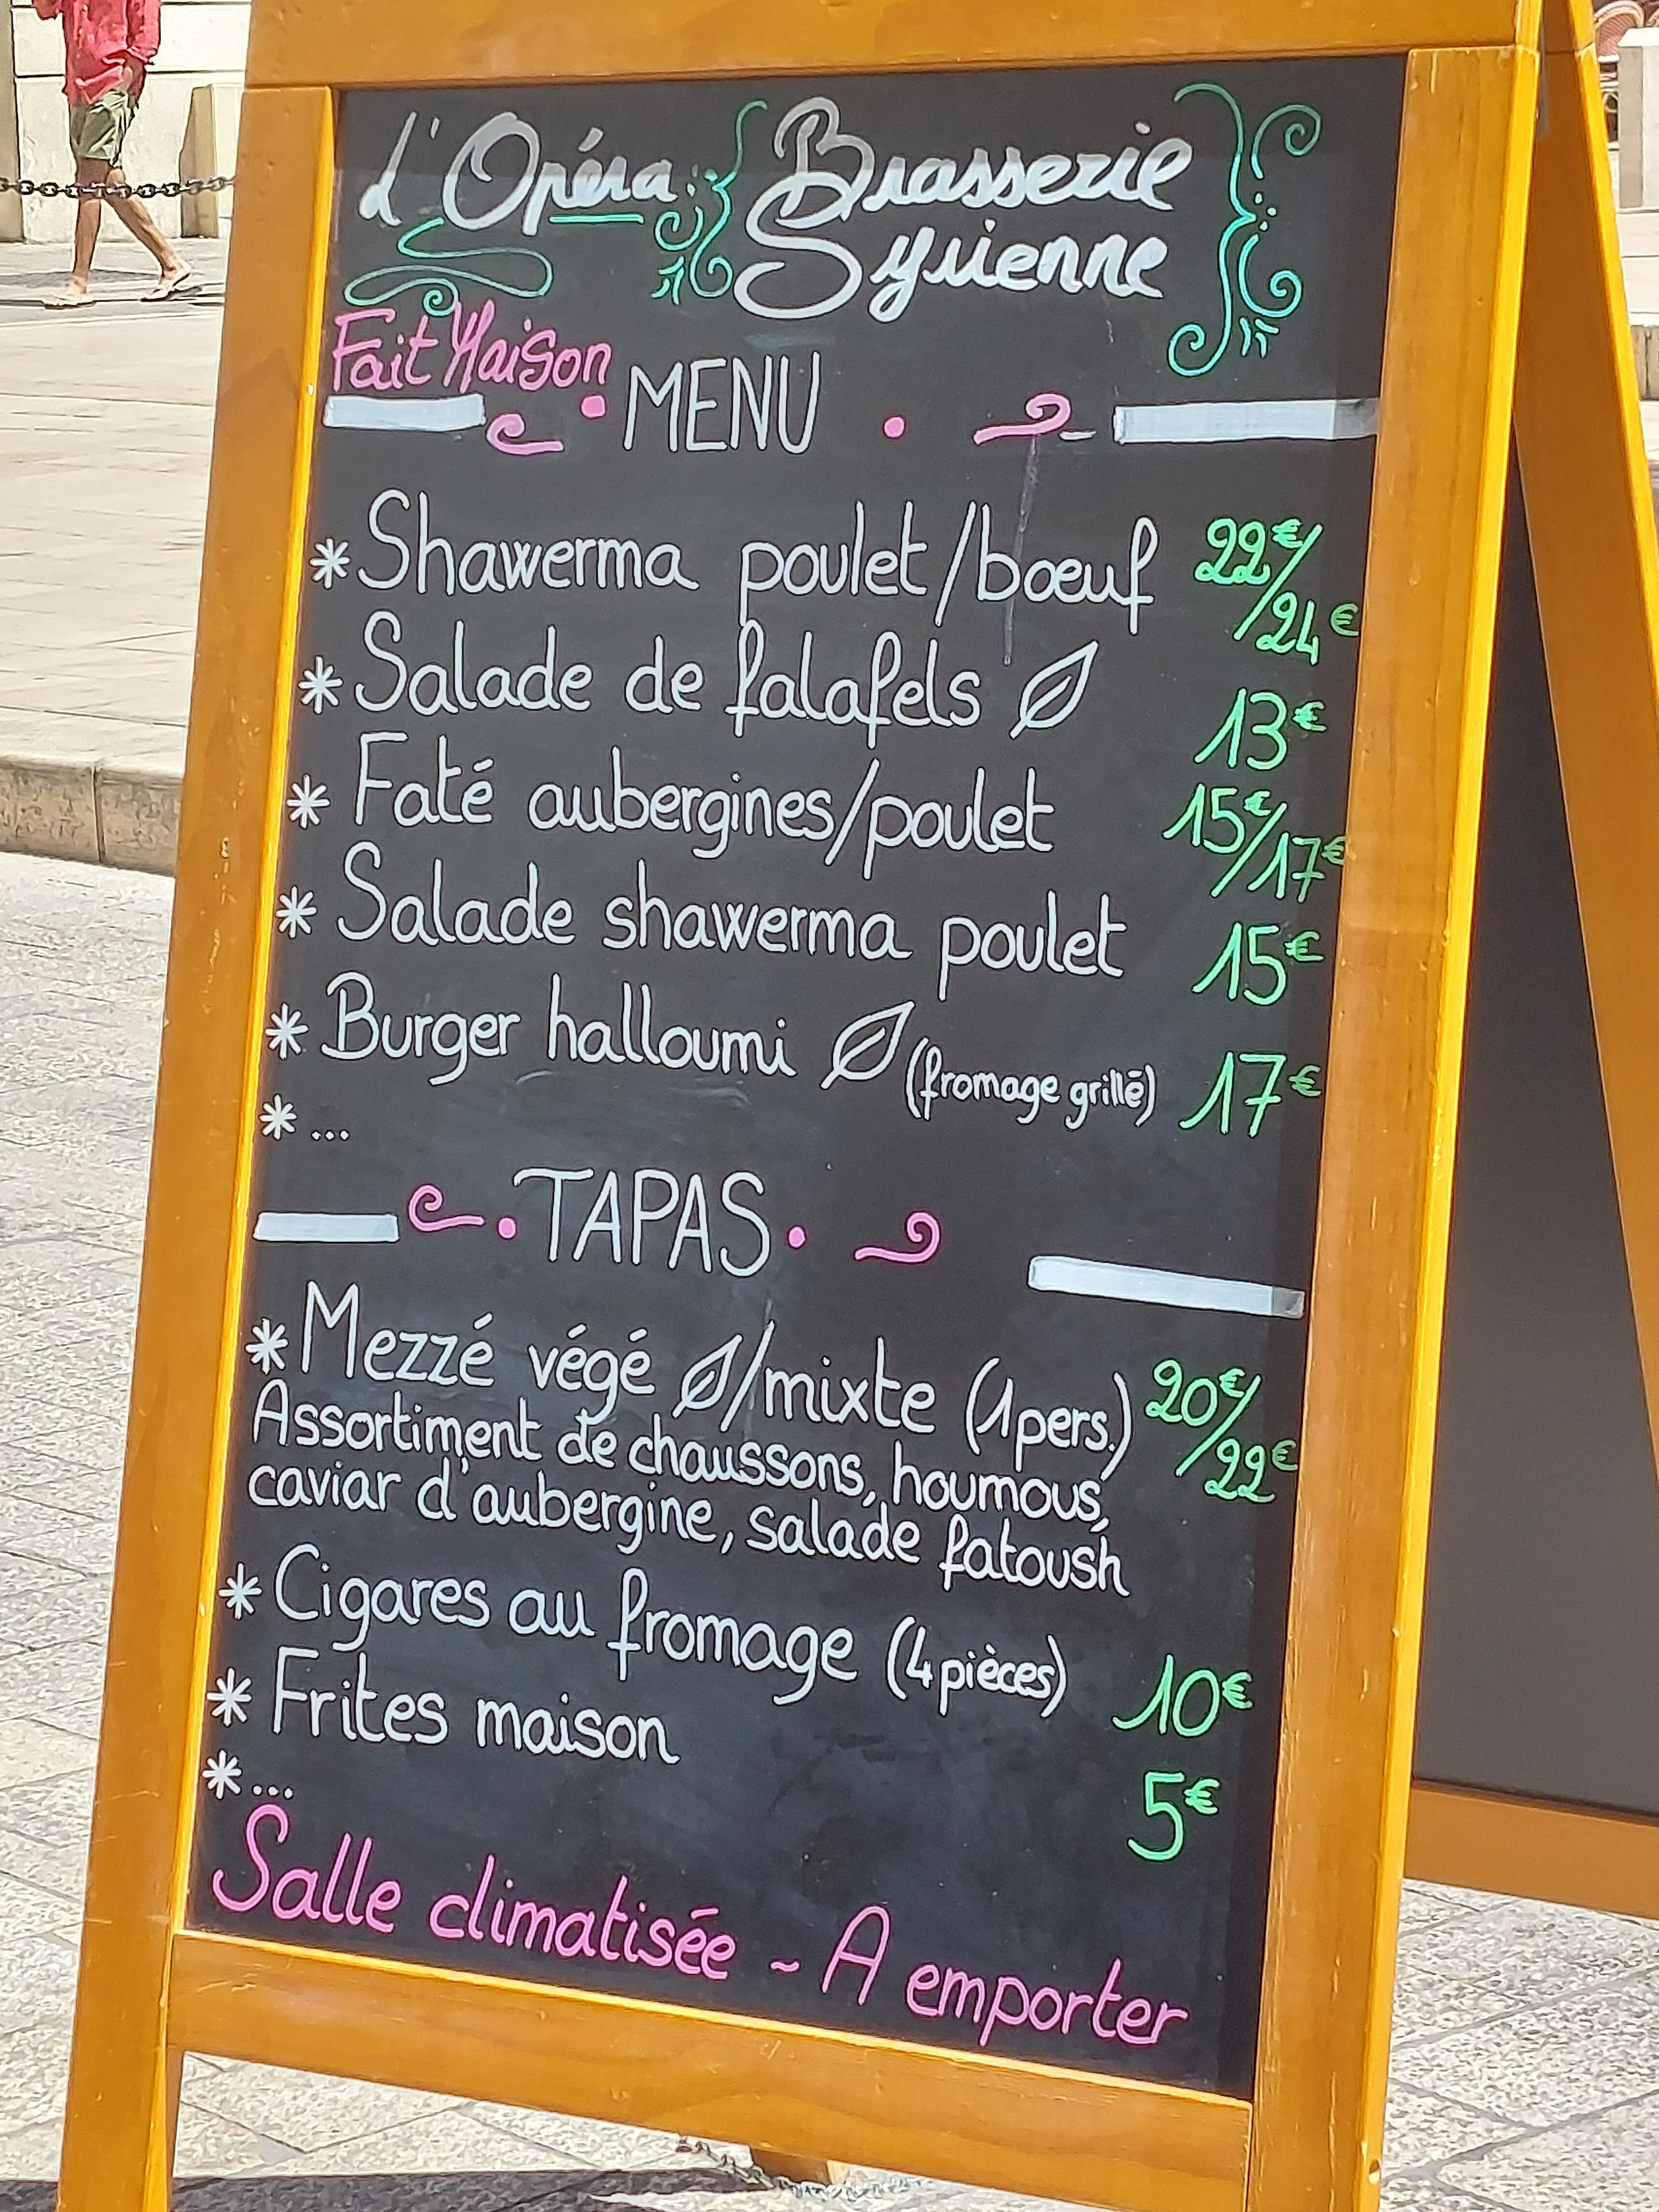 L'Opéra Brasserie
Syrienne
Fait Maison
MENU
* Shawerma poulet/bœuf 22€/
/24€
* Salade de falafels 13€
* Faté aubergines/poulet 15€/
/17€
* Salade shawerma poulet 15€
* Burger halloumi (fromage grillé) 17€
* ...
TAPAS
* Mezzé végé /mixte (1pers.) 20€/
/22€
Assortiment de chaussons, houmous,
caviar d'aubergine, salade fatoush
* Cigares au fromage (4 pièces) 10€
* Frites maison 5€
* ...
Salle climatisée - A emporter